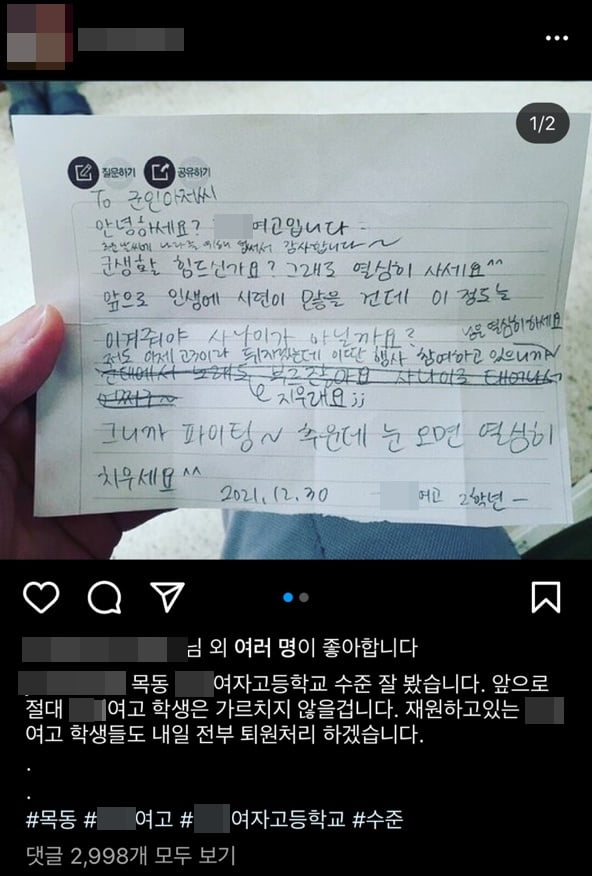 1/2
질문하기 공유하기
To 군인아저씨
안녕하세요? 여고입니다
추운 날씨에 나라를 위해 감사합니다~
군생활 힘드신가요? 그래도 열심히 사세요^^
앞으로 인생에 시련이 많을 건데 이 정도는
이겨줘야 사나이가 아닐까요?
저도 이제 고3이라 뒤지겠는데 이딴 행사 참여하고 있으니까~
군대에서 노래도 부르잖아요 사나이로 태어나서
어쩌구~
지우래요;;
그니까 파이팅~ 추운데 눈 오면 열심히
치우세요^^
2021.12.30 여고 2학년-
님 외 여러 명이 좋아합니다
목동 여자고등학교 수준 잘 봤습니다. 앞으로
절대 여고 학생은 가르치지 않을겁니다. 재원하고있는
여고 학생들도 내일 전부 퇴원처리 하겠습니다.
.
.
#목동 # 여고 # 여자고등학교 #수준
댓글 2,998개 모두 보기